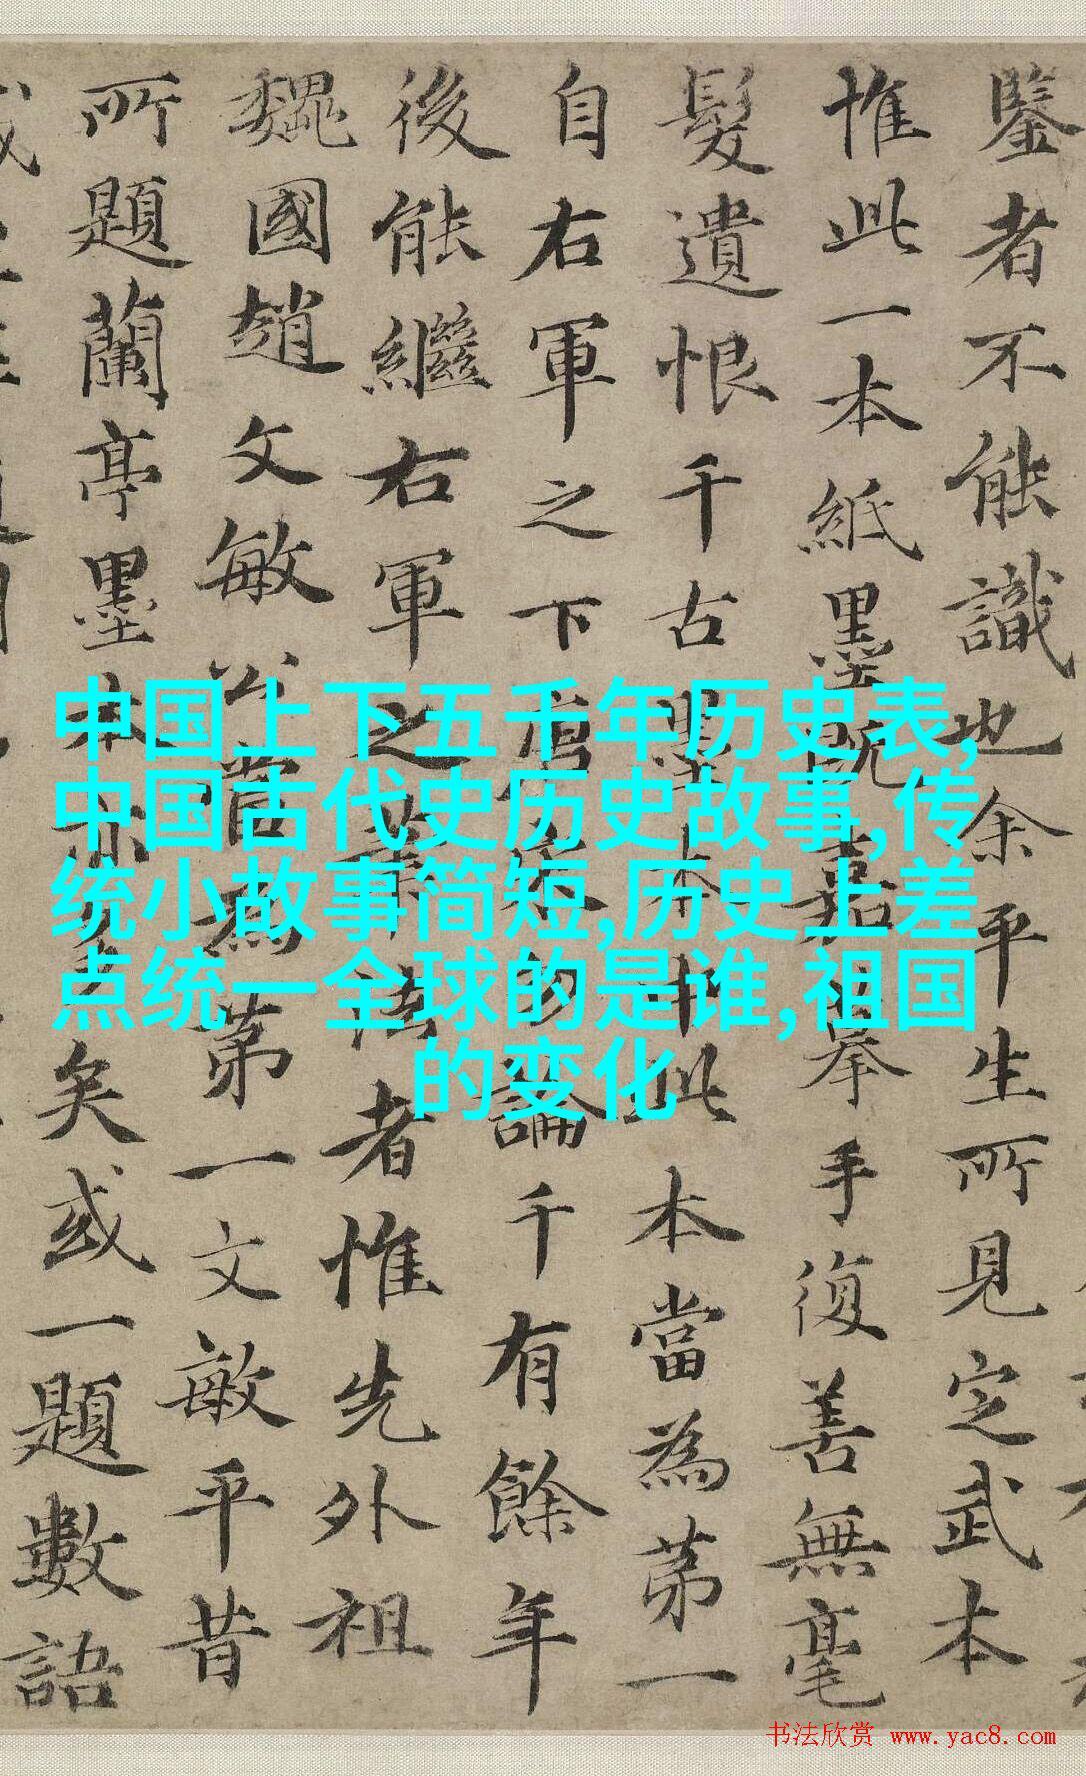 鑒者不能識也余平生所見定武本
惟此一本紙墨既嘉拳手復善無毫
髮遺恨千古墨本此本當為第一
自右軍之下論千有餘年
後能繼右軍之筆法者惟先外祖
魏國趙文敏公當為第一文敏平昔
所題蘭亭墨本亦多矣或一題數語
中国上下五千年历史表,
中国古代史历史故事,传
统小故事简短,历史上差
点统一全球的是谁,祖国
的变化
书法欣赏 www.yac8.com